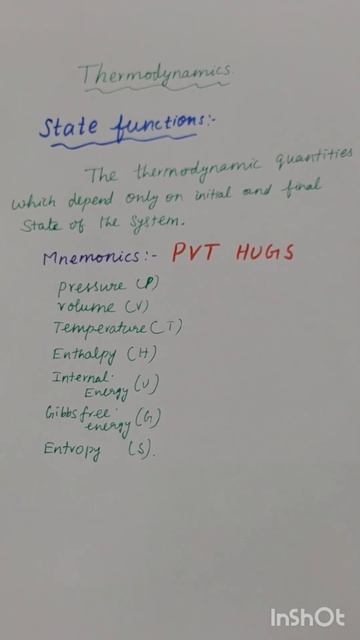 Thermodynamics.
State functions:-
The thermodynamic quantities
which depend only on initial and final
State of the system.
Mnemonics:- PVT HUGS
pressure (P)
volume (V)
Temperature (T)
Enthalpy (H)
Internal
Energy (U)
Gibbs free
energy (G)
Entropy (S).
InShOt